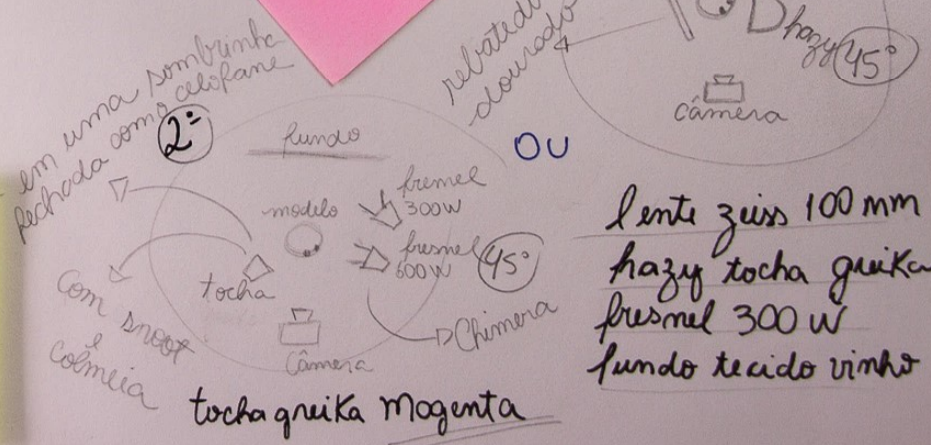 em uma sombrinha
fechada como celofane
2º
fundo
modelo
fremel
300W
fresnel
600W
45º
tocha
Câmera
Chimera
Com snoot
e
colmeia
tocha greika Magenta
OU
dourado
hazy 45º
câmera
lente zeiss 100 mm
hazy tocha greika
fresnel 300 W
fundo tecido vinho